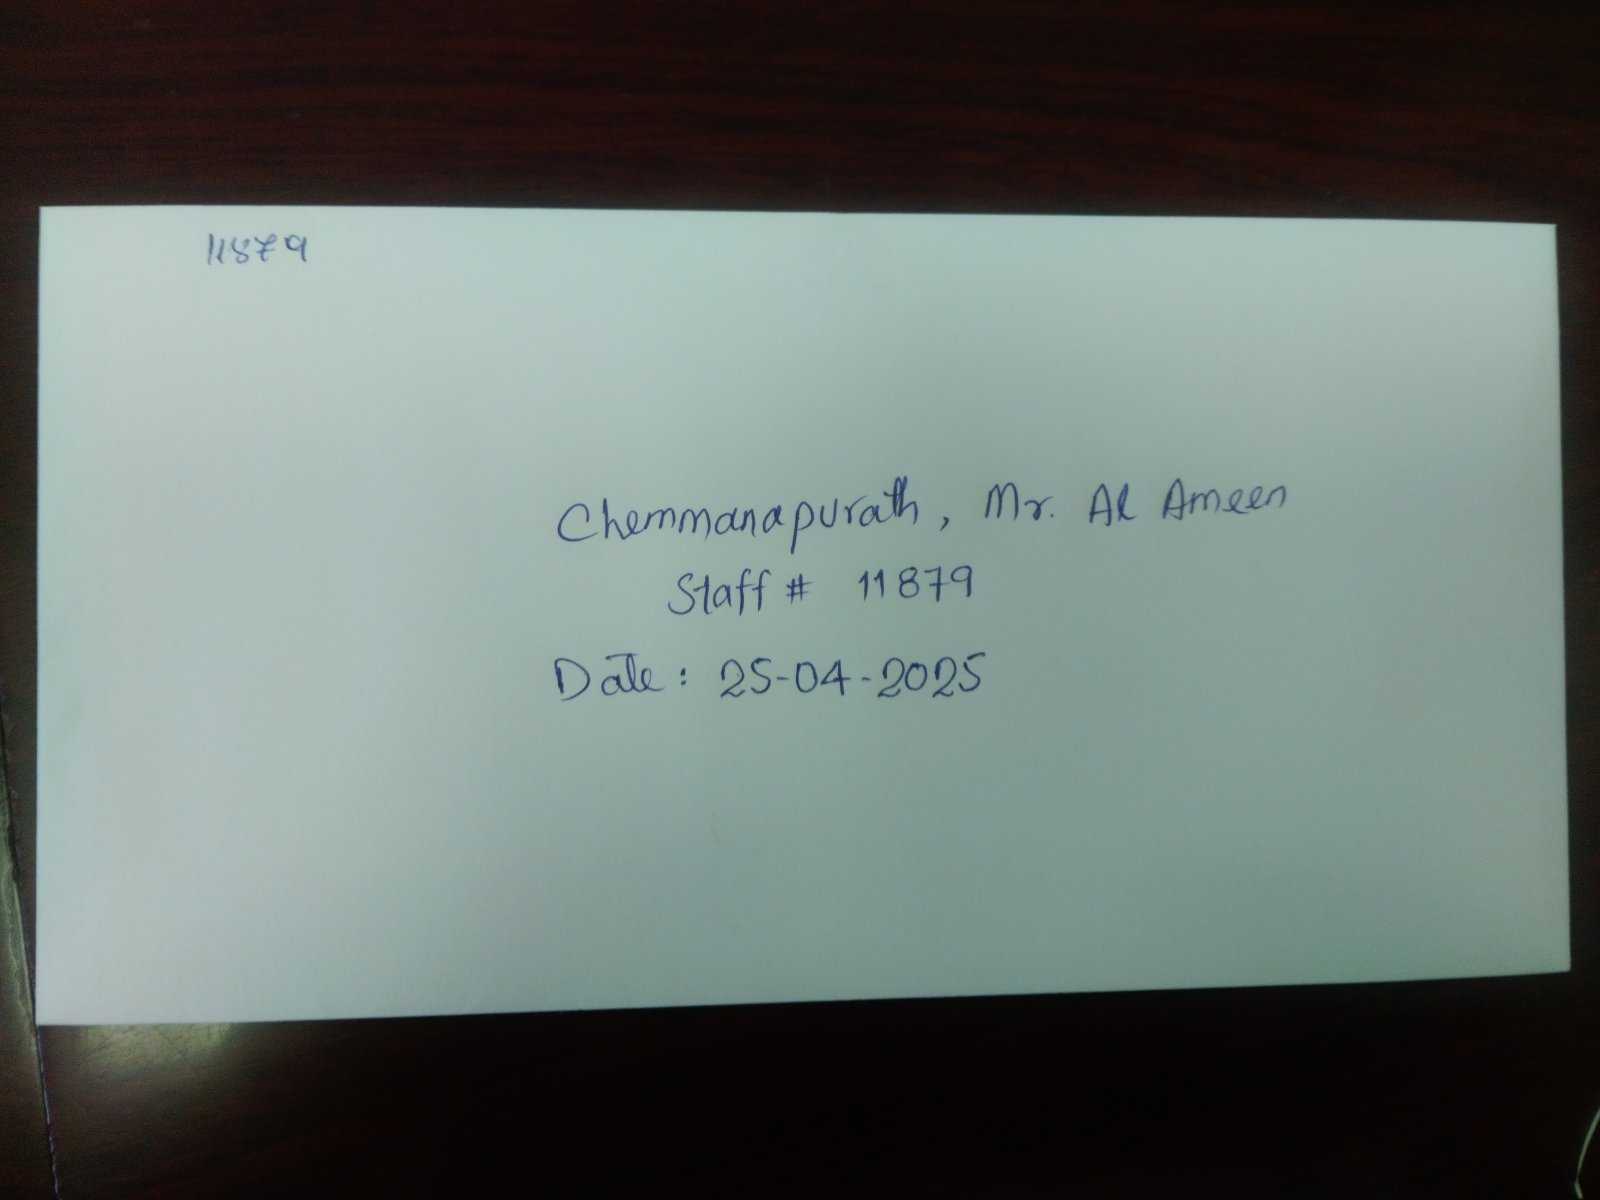 11879
Chemmanapurath, Mr. Al Ameen
Staff # 11879
Date: 25-04-2025